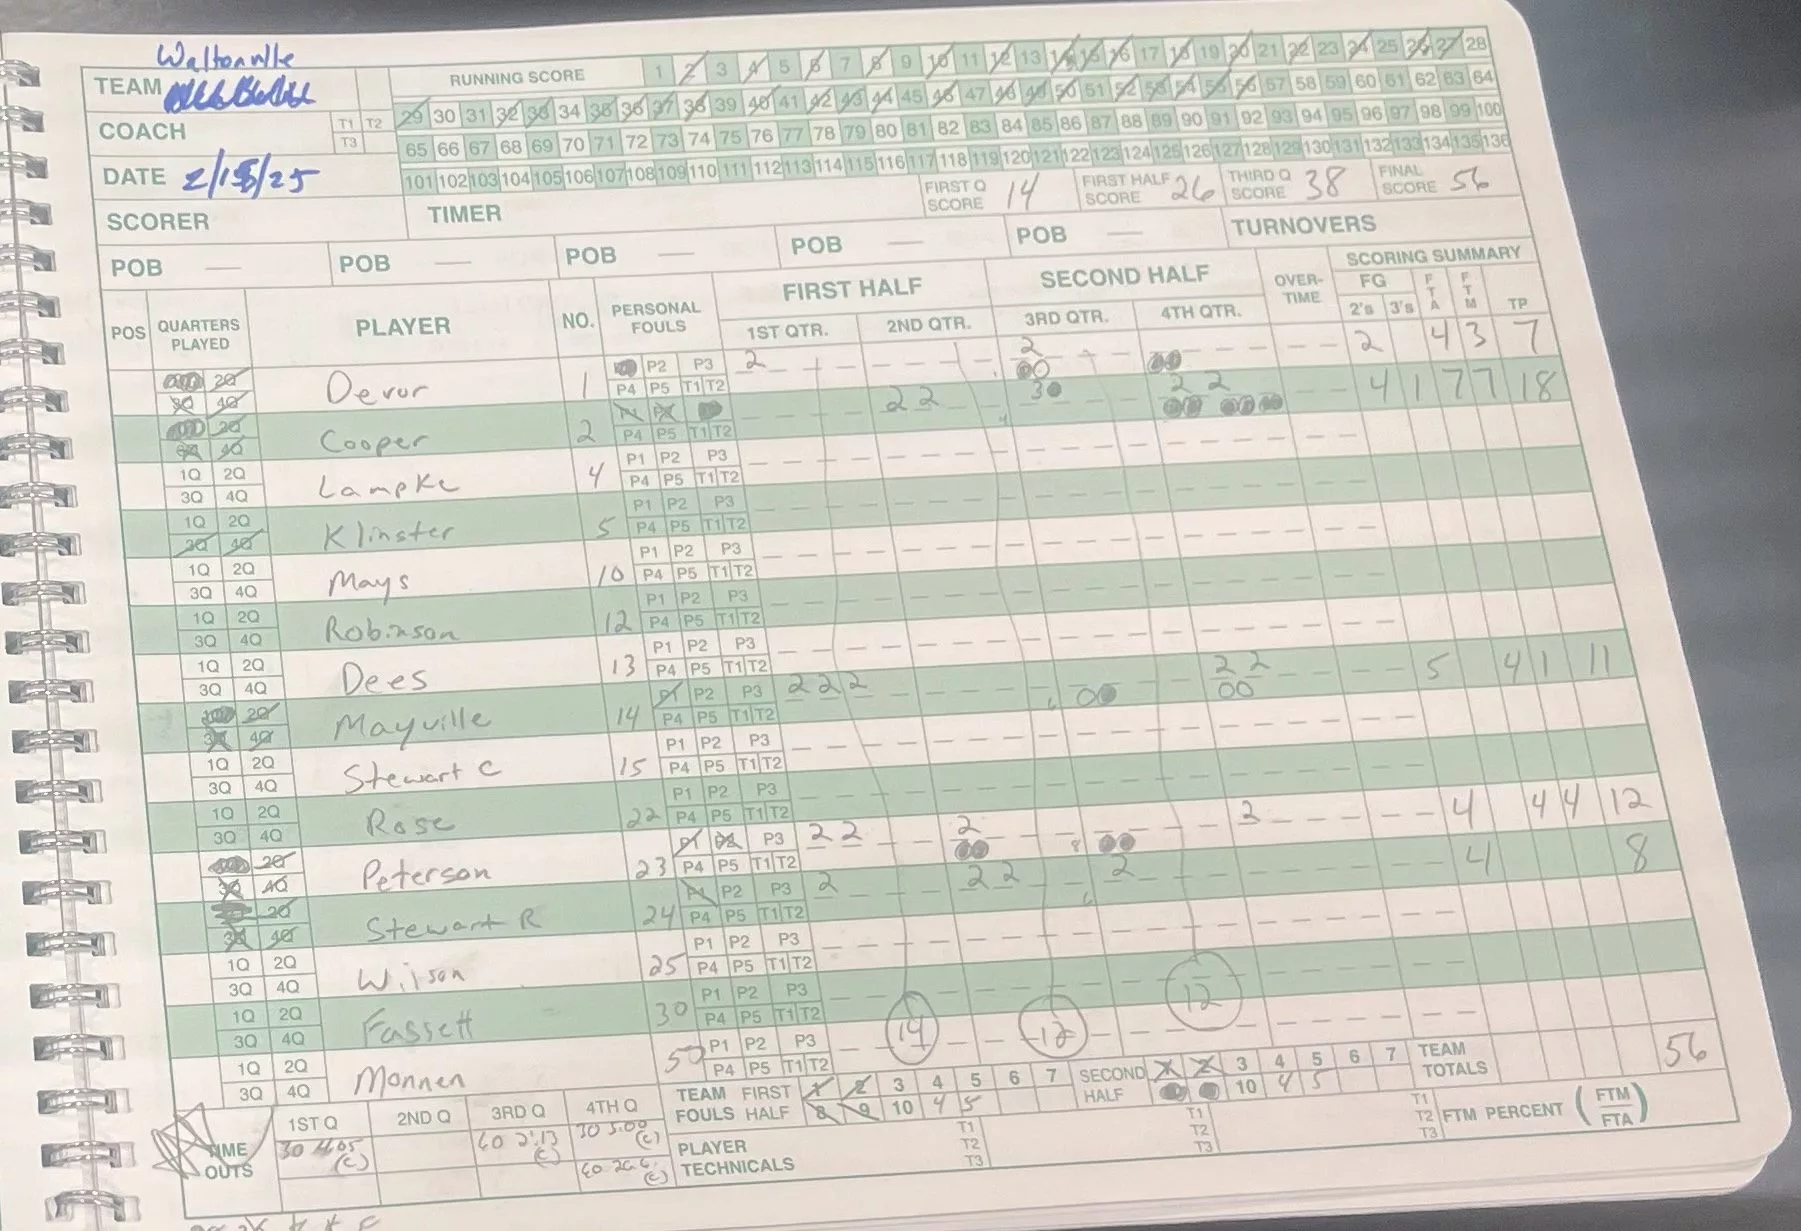 Waltonville
TEAM
RUNNING SCORE 1 2 3 4 5 6 7 8 9 10 11 12 13 14 15 16 17 18 19 20 21 22 23 24 25 26 27 28
29 30 31 32 33 34 35 36 37 38 39 40 41 42 43 44 45 46 47 48 49 50 51 52 53 54 55 56 57 58 59 60 61 62 63 64
COACH T1 T2 T3
65 66 67 68 69 70 71 72 73 74 75 76 77 78 79 80 81 82 83 84 85 86 87 88 89 90 91 92 93 94 95 96 97 98 99 100
DATE 2/15/25
101 102 103 104 105 106 107 108 109 110 111 112 113 114 115 116 117 118 119 120 121 122 123 124 125 126 127 128 129 130 131 132 133 134 135 136
SCORER TIMER FIRST Q SCORE 14 FIRST HALF SCORE 26 THIRD Q SCORE 38 FINAL SCORE 56
POB — POB — POB — POB — POB — TURNOVERS
POS QUARTERS PLAYED PLAYER NO. PERSONAL FOULS FIRST HALF SECOND HALF OVER-TIME SCORING SUMMARY
1ST QTR. 2ND QTR. 3RD QTR. 4TH QTR. FG 2's 3's FTA FTM TP
2Q P2 P3 2 2 2 4 3 7
3Q 4Q Devor 1 P4 P5 T1 T2
2Q P1 P2 2 2 3 2 2 4 1 7 7 18
3Q 4Q Cooper 2 P4 P5 T1 T2
1Q 2Q P1 P2 P3
3Q 4Q Lampke 4 P4 P5 T1 T2
1Q 2Q P1 P2 P3
3Q 4Q Klinster 5 P4 P5 T1 T2
1Q 2Q P1 P2 P3
3Q 4Q Mays 10 P4 P5 T1 T2
1Q 2Q P1 P2 P3
3Q 4Q Robinson 12 P4 P5 T1 T2
1Q 2Q P1 P2 P3
3Q 4Q Dees 13 P4 P5 T1 T2
2Q P1 P2 P3 2 2 2 2 2 5 4 1 11
3Q 4Q Mayville 14 P4 P5 T1 T2
1Q 2Q P1 P2 P3
3Q 4Q Stewart C 15 P4 P5 T1 T2
1Q 2Q P1 P2 P3
3Q 4Q Rose 22 P4 P5 T1 T2
2Q P1 P2 P3 2 2 2 2 4 4 4 12
3Q 4Q Peterson 23 P4 P5 T1 T2
2Q P1 P2 P3 2 2 2 2 4 8
3Q 4Q Stewart R 24 P4 P5 T1 T2
1Q 2Q P1 P2 P3
3Q 4Q Wilson 25 P4 P5 T1 T2
1Q 2Q P1 P2 P3
3Q 4Q Fassett 30 P4 P5 T1 T2
1Q 2Q P1 P2 P3
3Q 4Q Monnen 50 P4 P5 T1 T2
14 12 12
TIME OUTS 1ST Q 2ND Q 3RD Q 4TH Q
30 4:05 (c) 60 2:13 (c) 30 5:00 (c)
(c)
TEAM FOULS FIRST HALF 1 2 3 4 5 6 7
8 9 10 4 5
SECOND HALF 1 2 3 4 5 6 7
10 4 5
TEAM TOTALS 56
PLAYER TECHNICALS T1 T2 T3 T1 T2 T3 T1 T2 T3
FTM PERCENT (FTM/FTA)